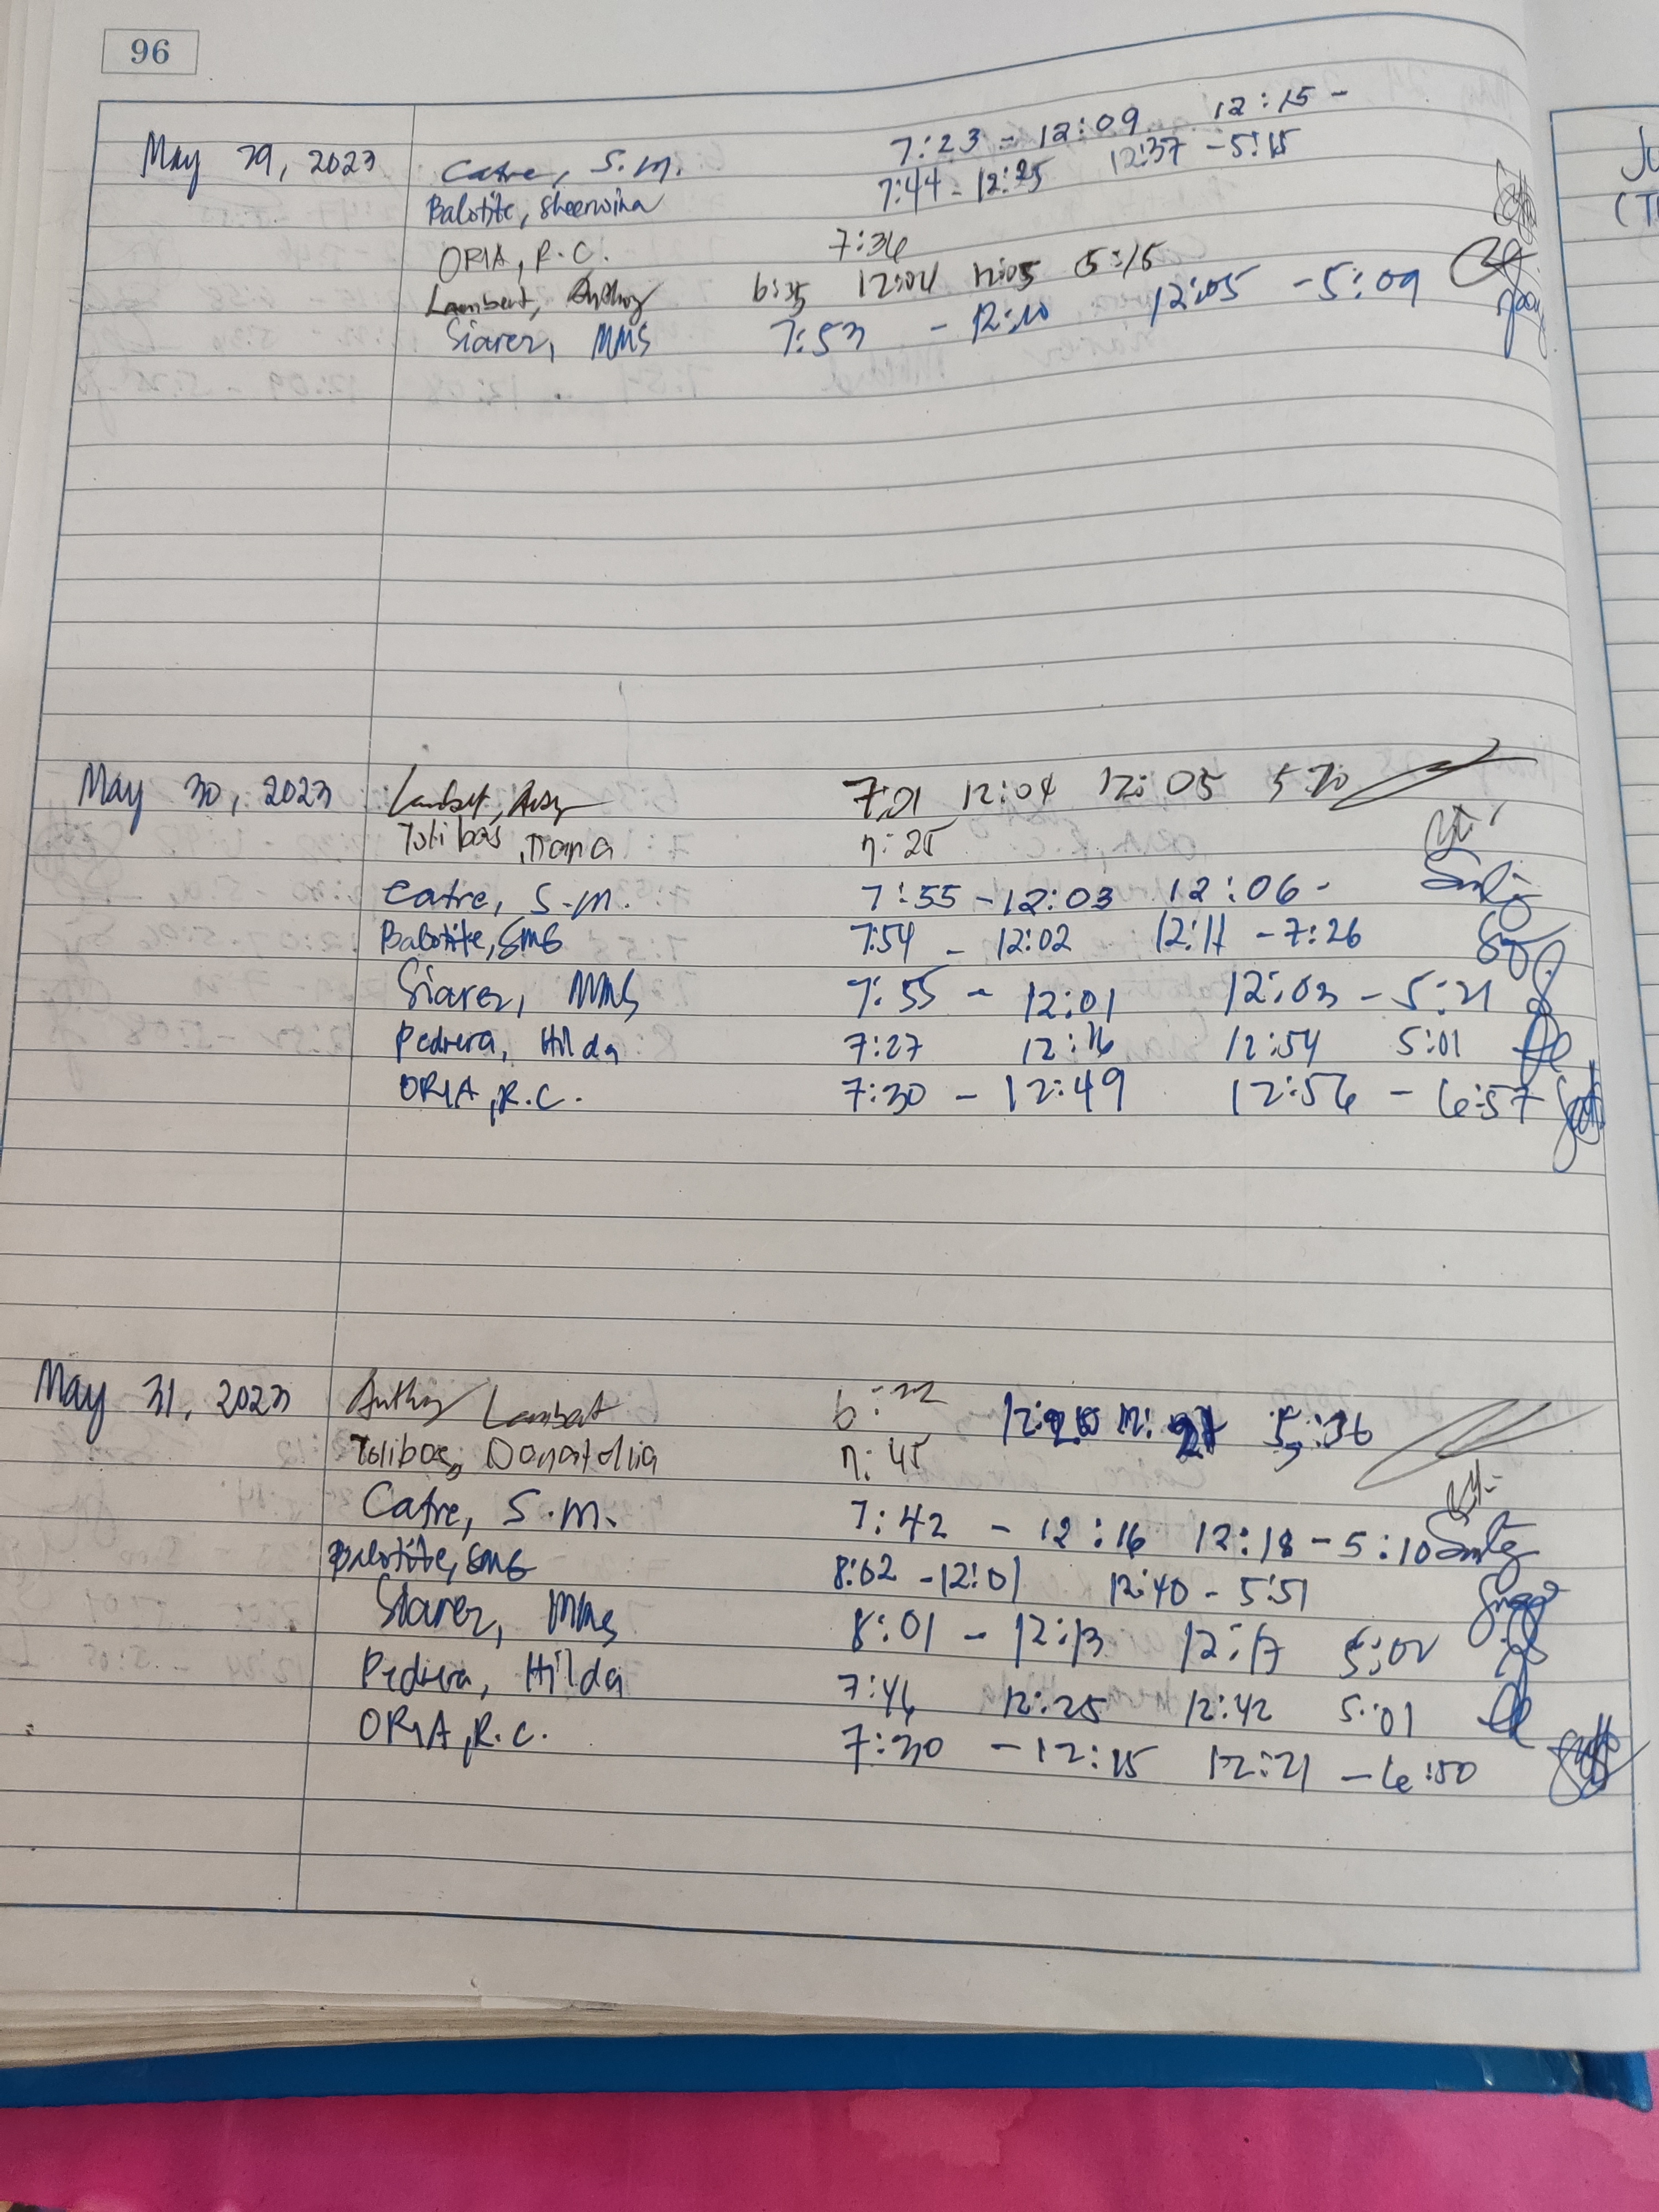 96
May 29, 2023 Catre, S.M. 7:23 - 12:09 12:15 -
Balotite, Sheerwina 7:44 - 12:25 12:37 - 5:15
ORIA, R.C. 7:36
Lambert, Anthony 6:35 12:04 12:05 5:15
Siarez, MMS 7:53 - 12:10 12:05 - 5:09
May 30, 2023 Lambert, 7:01 12:04 12:05
Tolibas, 7:25
Catre, S.M. 7:55 - 12:03 12:06 -
Balotite, SMG 7:54 - 12:02 12:11 - 7:26
Siarez, MMS 7:55 - 12:01 12:03 - 5:21
Pedrera, Hilda 7:27 12:16 12:54 5:01
ORIA, R.C. 7:30 - 12:49 12:56 - 6:57
May 31, 2023 Anthony Lambert 5:36
Tolibas, Donatellia 7:45
Catre, S.M. 7:42 - 12:16 12:18 - 5:10
Balotite, SMG 8:02 - 12:01 12:40 - 5:51
Siarez, MMS 8:01 - 12:13 12:17 5:02
Pedrera, Hilda 7:46 12:25 12:42 5:01
ORIA, R.C. 7:30 - 12:15 12:21 - 6:50